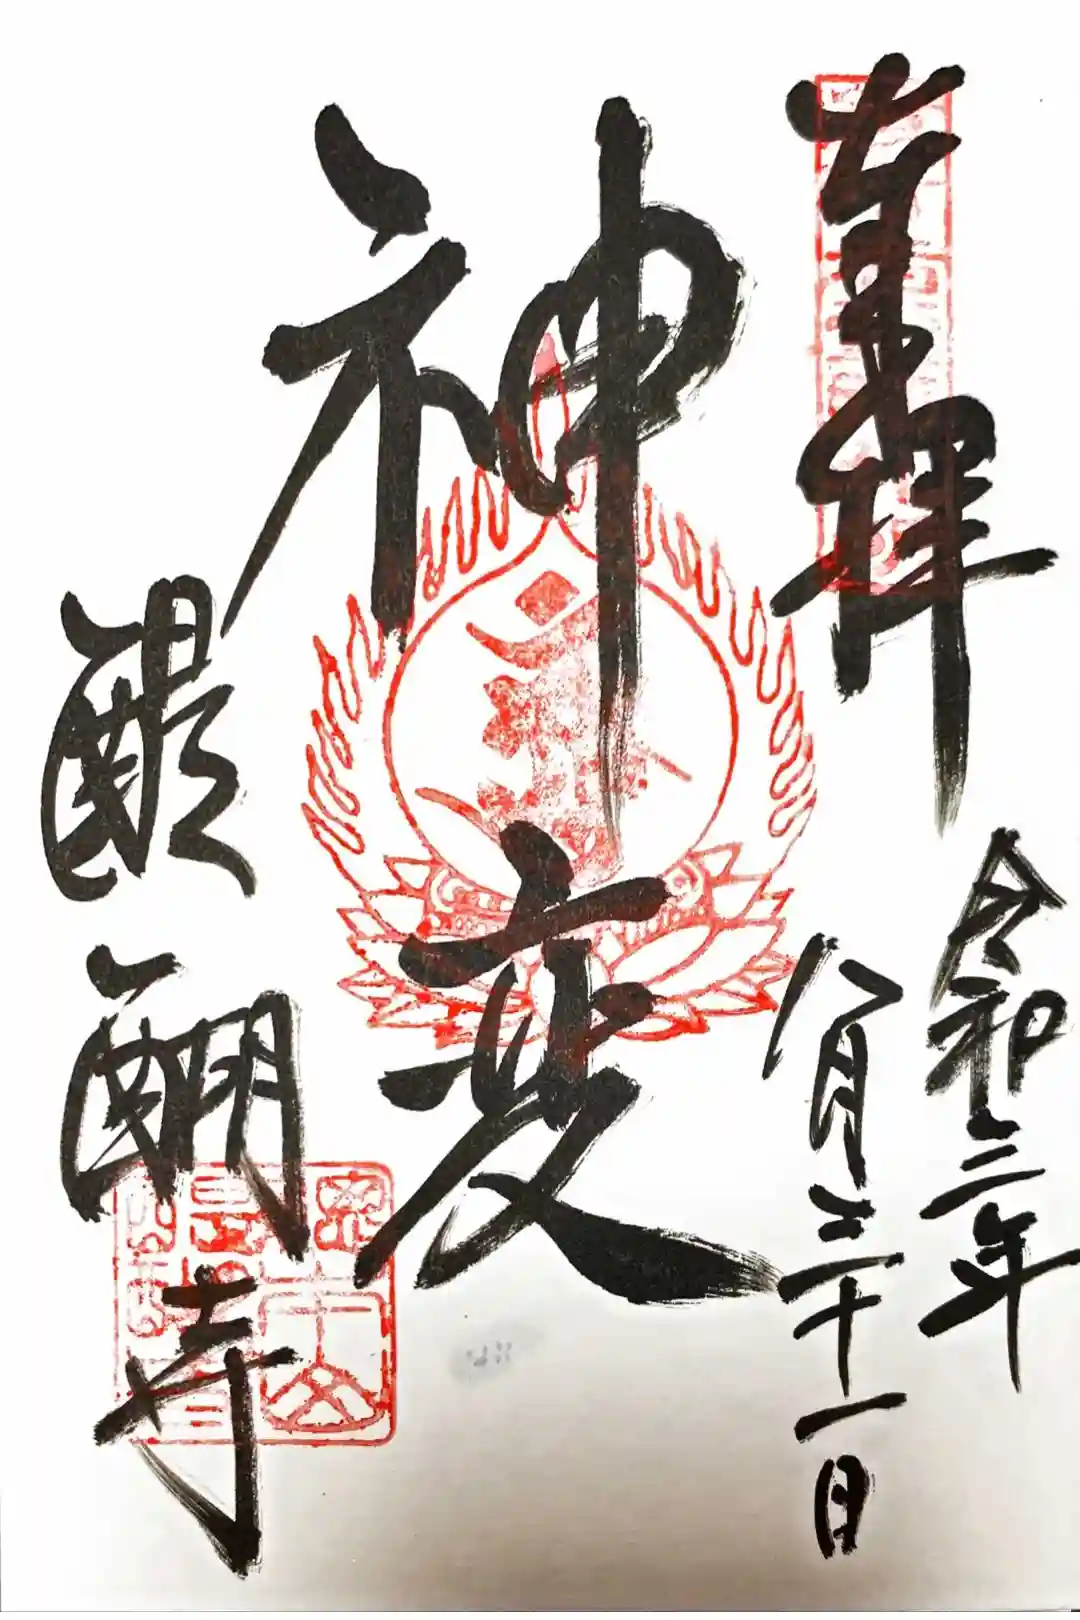 奉拝
令和三年
八月三十一日
神変
醍醐寺